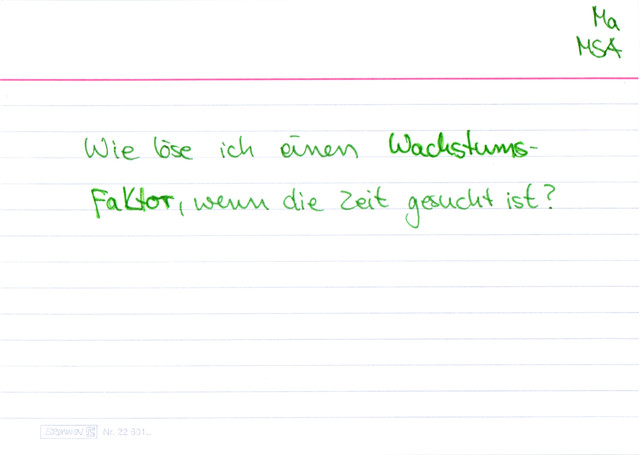 Ma
MSA
Wie löse ich einen Wachstums-
Faktor, wenn die Zeit gesucht ist?
BRUNNEN Nr. 22 501